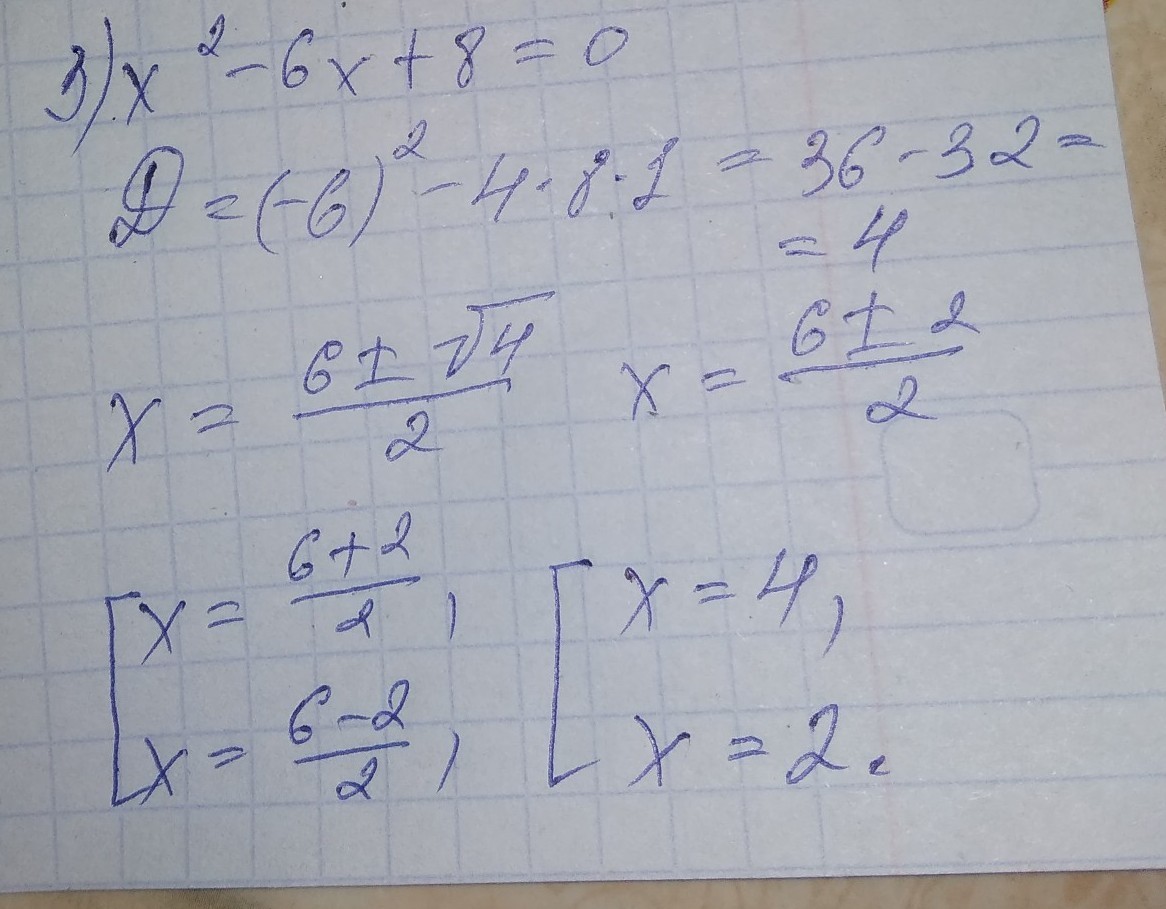 3) x² - 6x + 8 = 0
D = (-6)² - 4 · 8 · 1 = 36 - 32 =
= 4
x = (6 ± √4)/2 x = (6 ± 2)/2
[ x = (6 + 2)/2, [ x = 4,
x = (6 - 2)/2, x = 2.